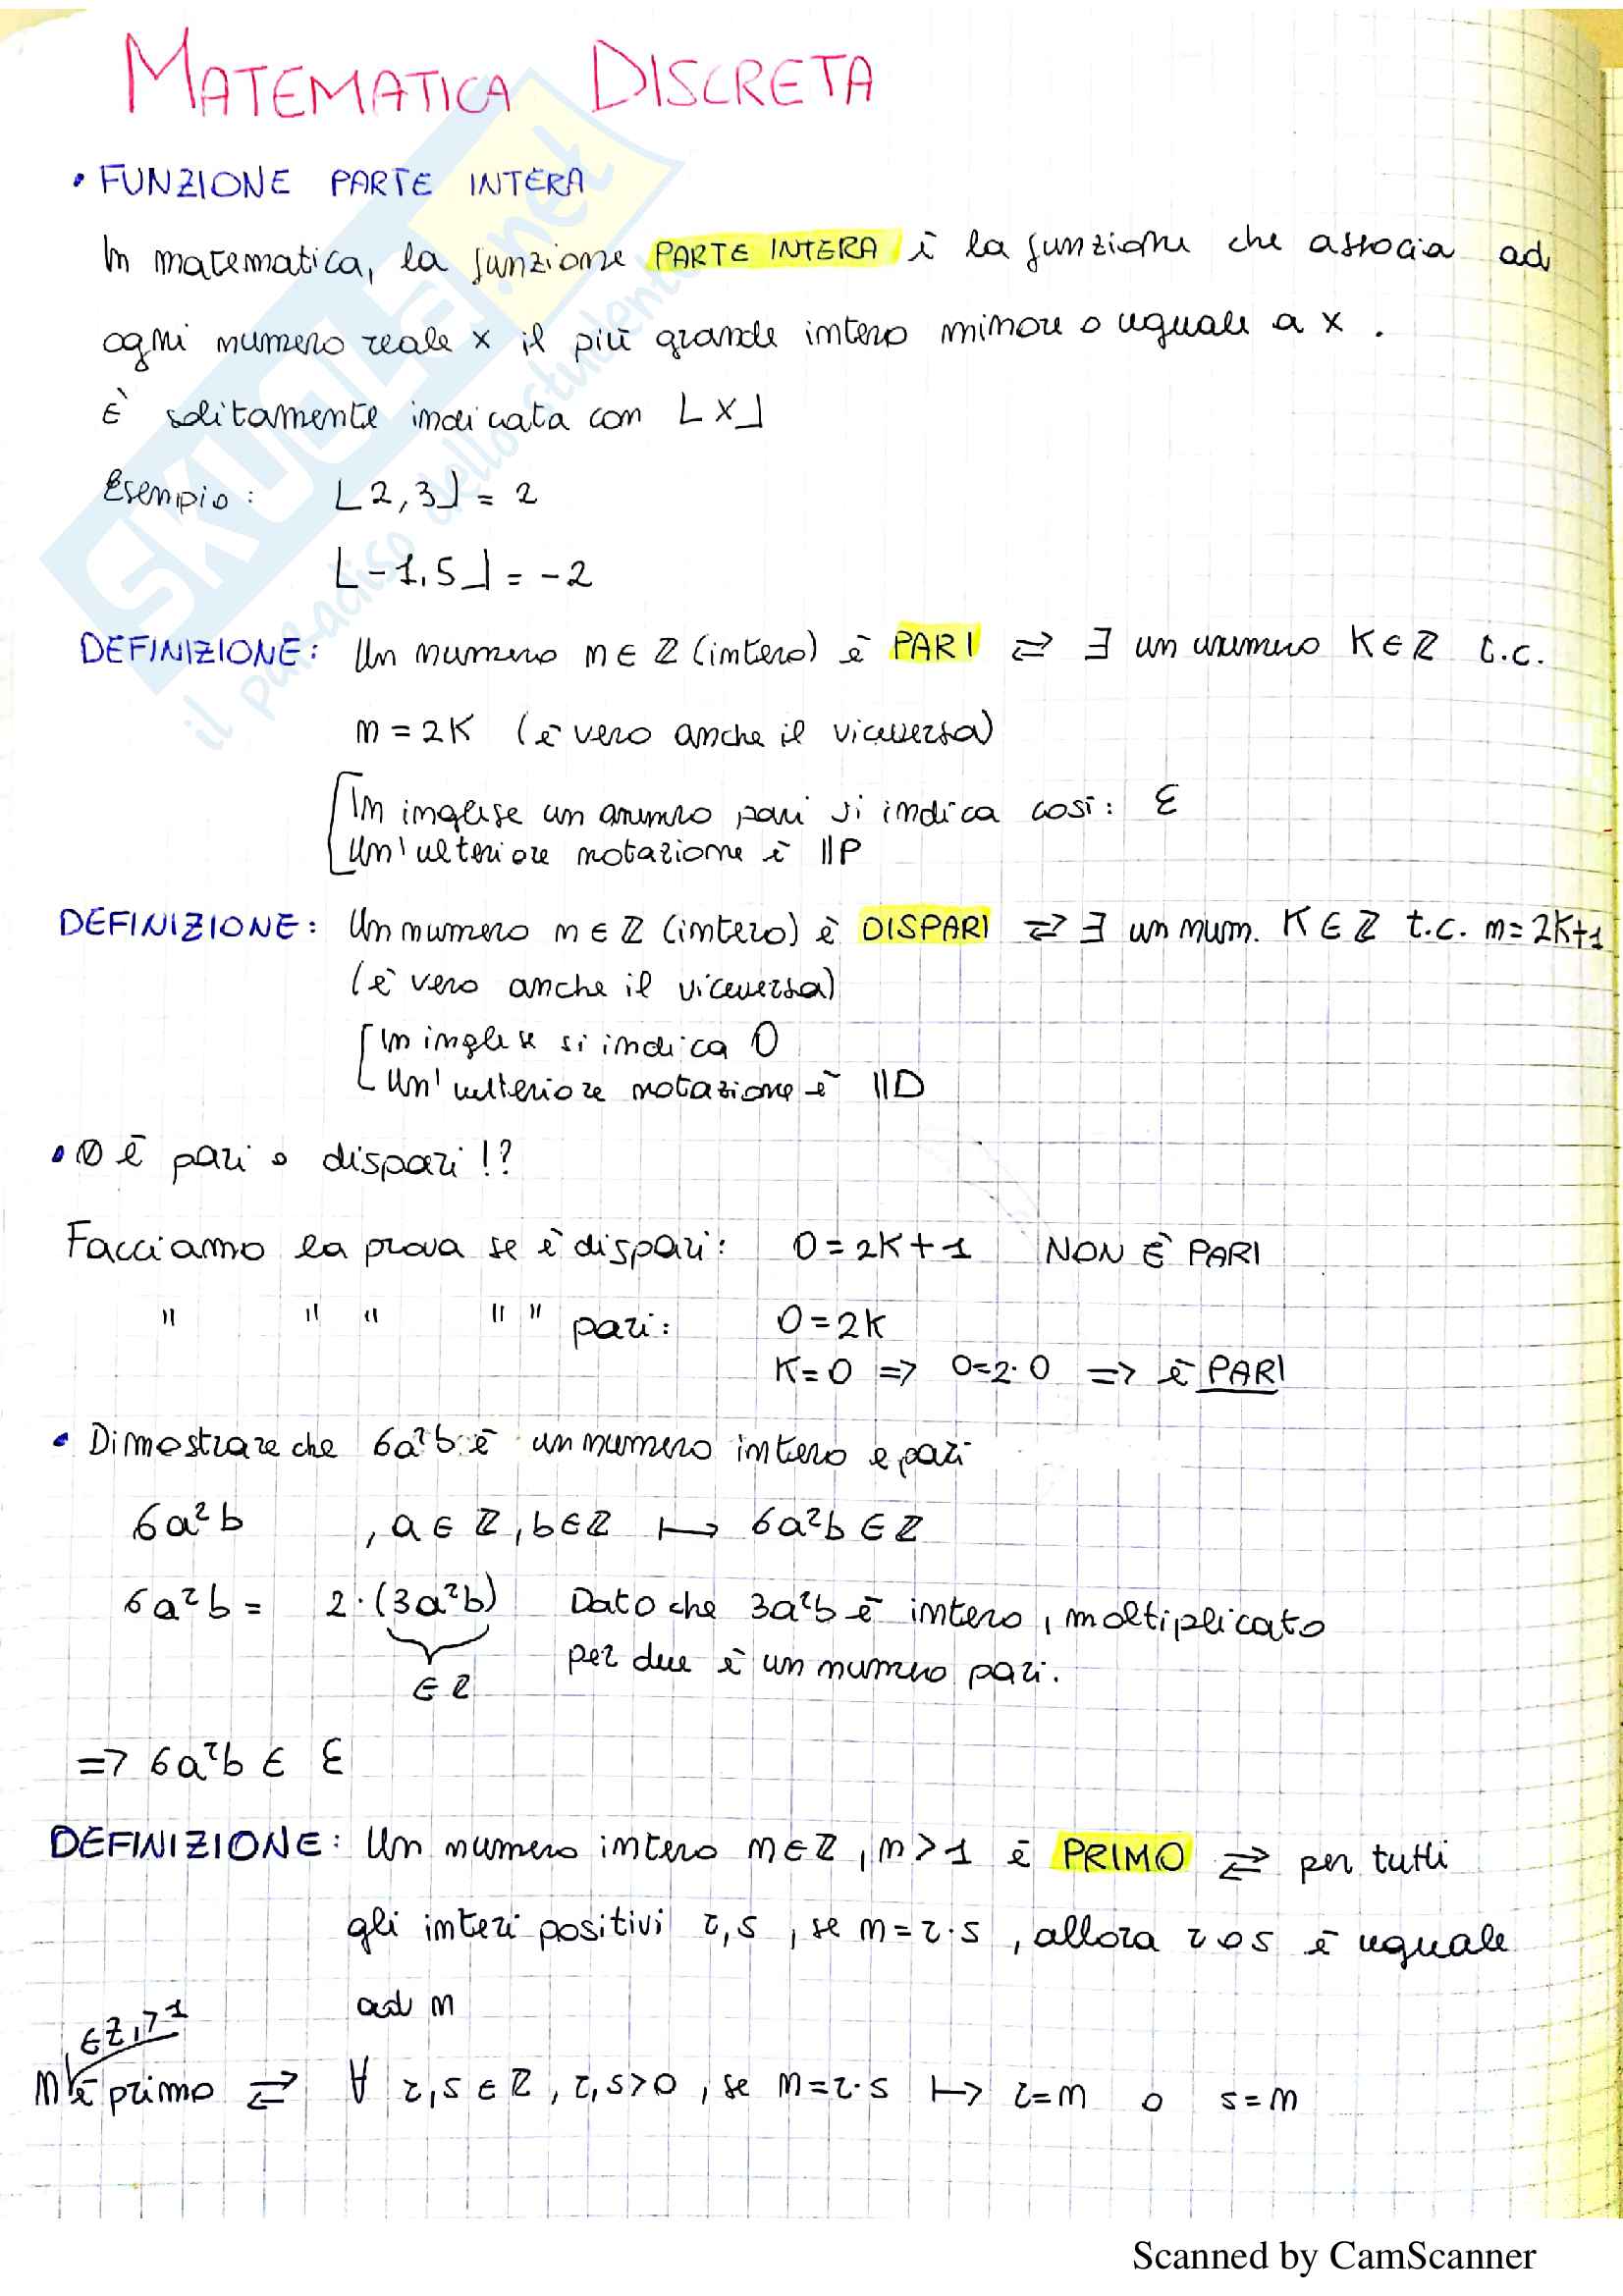 MATEMATICA DISCRETA
• FUNZIONE PARTE INTERA
In matematica, la funzione PARTE INTERA è la funzione che associa ad
ogni numero reale x il più grande intero minore o uguale a x.
È solitamente indicata con ⌊x⌋
Esempio: ⌊2,3⌋ = 2
⌊-1,5⌋ = -2
DEFINIZIONE: Un numero n ∈ ℤ (intero) è PARI ⇄ ∃ un numero K ∈ ℤ t.c.
n = 2K (è vero anche il viceversa)
In inglese un numero pari si indica così: Ɛ
Un'ulteriore notazione è ℙ
DEFINIZIONE: Un numero n ∈ ℤ (intero) è DISPARI ⇄ ∃ un num. K ∈ ℤ t.c. n = 2K+1
(è vero anche il viceversa)
In inglese si indica O
Un'ulteriore notazione è 𝔻
• 0 è pari o dispari!?
Facciamo la prova se è dispari: 0 = 2K + 1 NON È PARI
" " " " " pari: 0 = 2K
K = 0 => 0 = 2·0 => è PARI
• Dimostrare che 6a²b è un numero intero e pari
6a²b , a ∈ ℤ, b ∈ ℤ ↦ 6a²b ∈ ℤ
6a²b = 2·(3a²b) Dato che 3a²b è intero, moltiplicato
∈ ℤ per due è un numero pari.
=> 6a²b ∈ Ɛ
DEFINIZIONE: Un numero intero n ∈ ℤ, n > 1 è PRIMO ⇄ per tutti
gli interi positivi r, s, se n = r·s, allora r o s è uguale
ad n
∈ ℤ, > 1
n è primo ⇄ ∀ r, s ∈ ℤ, r, s > 0, se n = r·s ↦ r = n o s = n
Scanned by CamScanner
SKUOLA.net
il paradiso dello studente